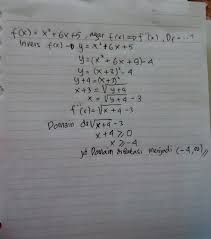 f(x) = x² + 6x + 5, agar f(x) → f⁻¹(x), Df = ...?
Invers f(x) → y = x² + 6x + 5
y = (x² + 6x + 9) - 4
y = (x + 3)² - 4
y + 4 = (x + 3)²
x + 3 = √y+4
x = √y+4 - 3
f⁻¹(x) = √x+4 - 3
Domain dr √x+4 - 3
x + 4 ≥ 0
x ≥ -4
Domain menjadi (-4, ∞)